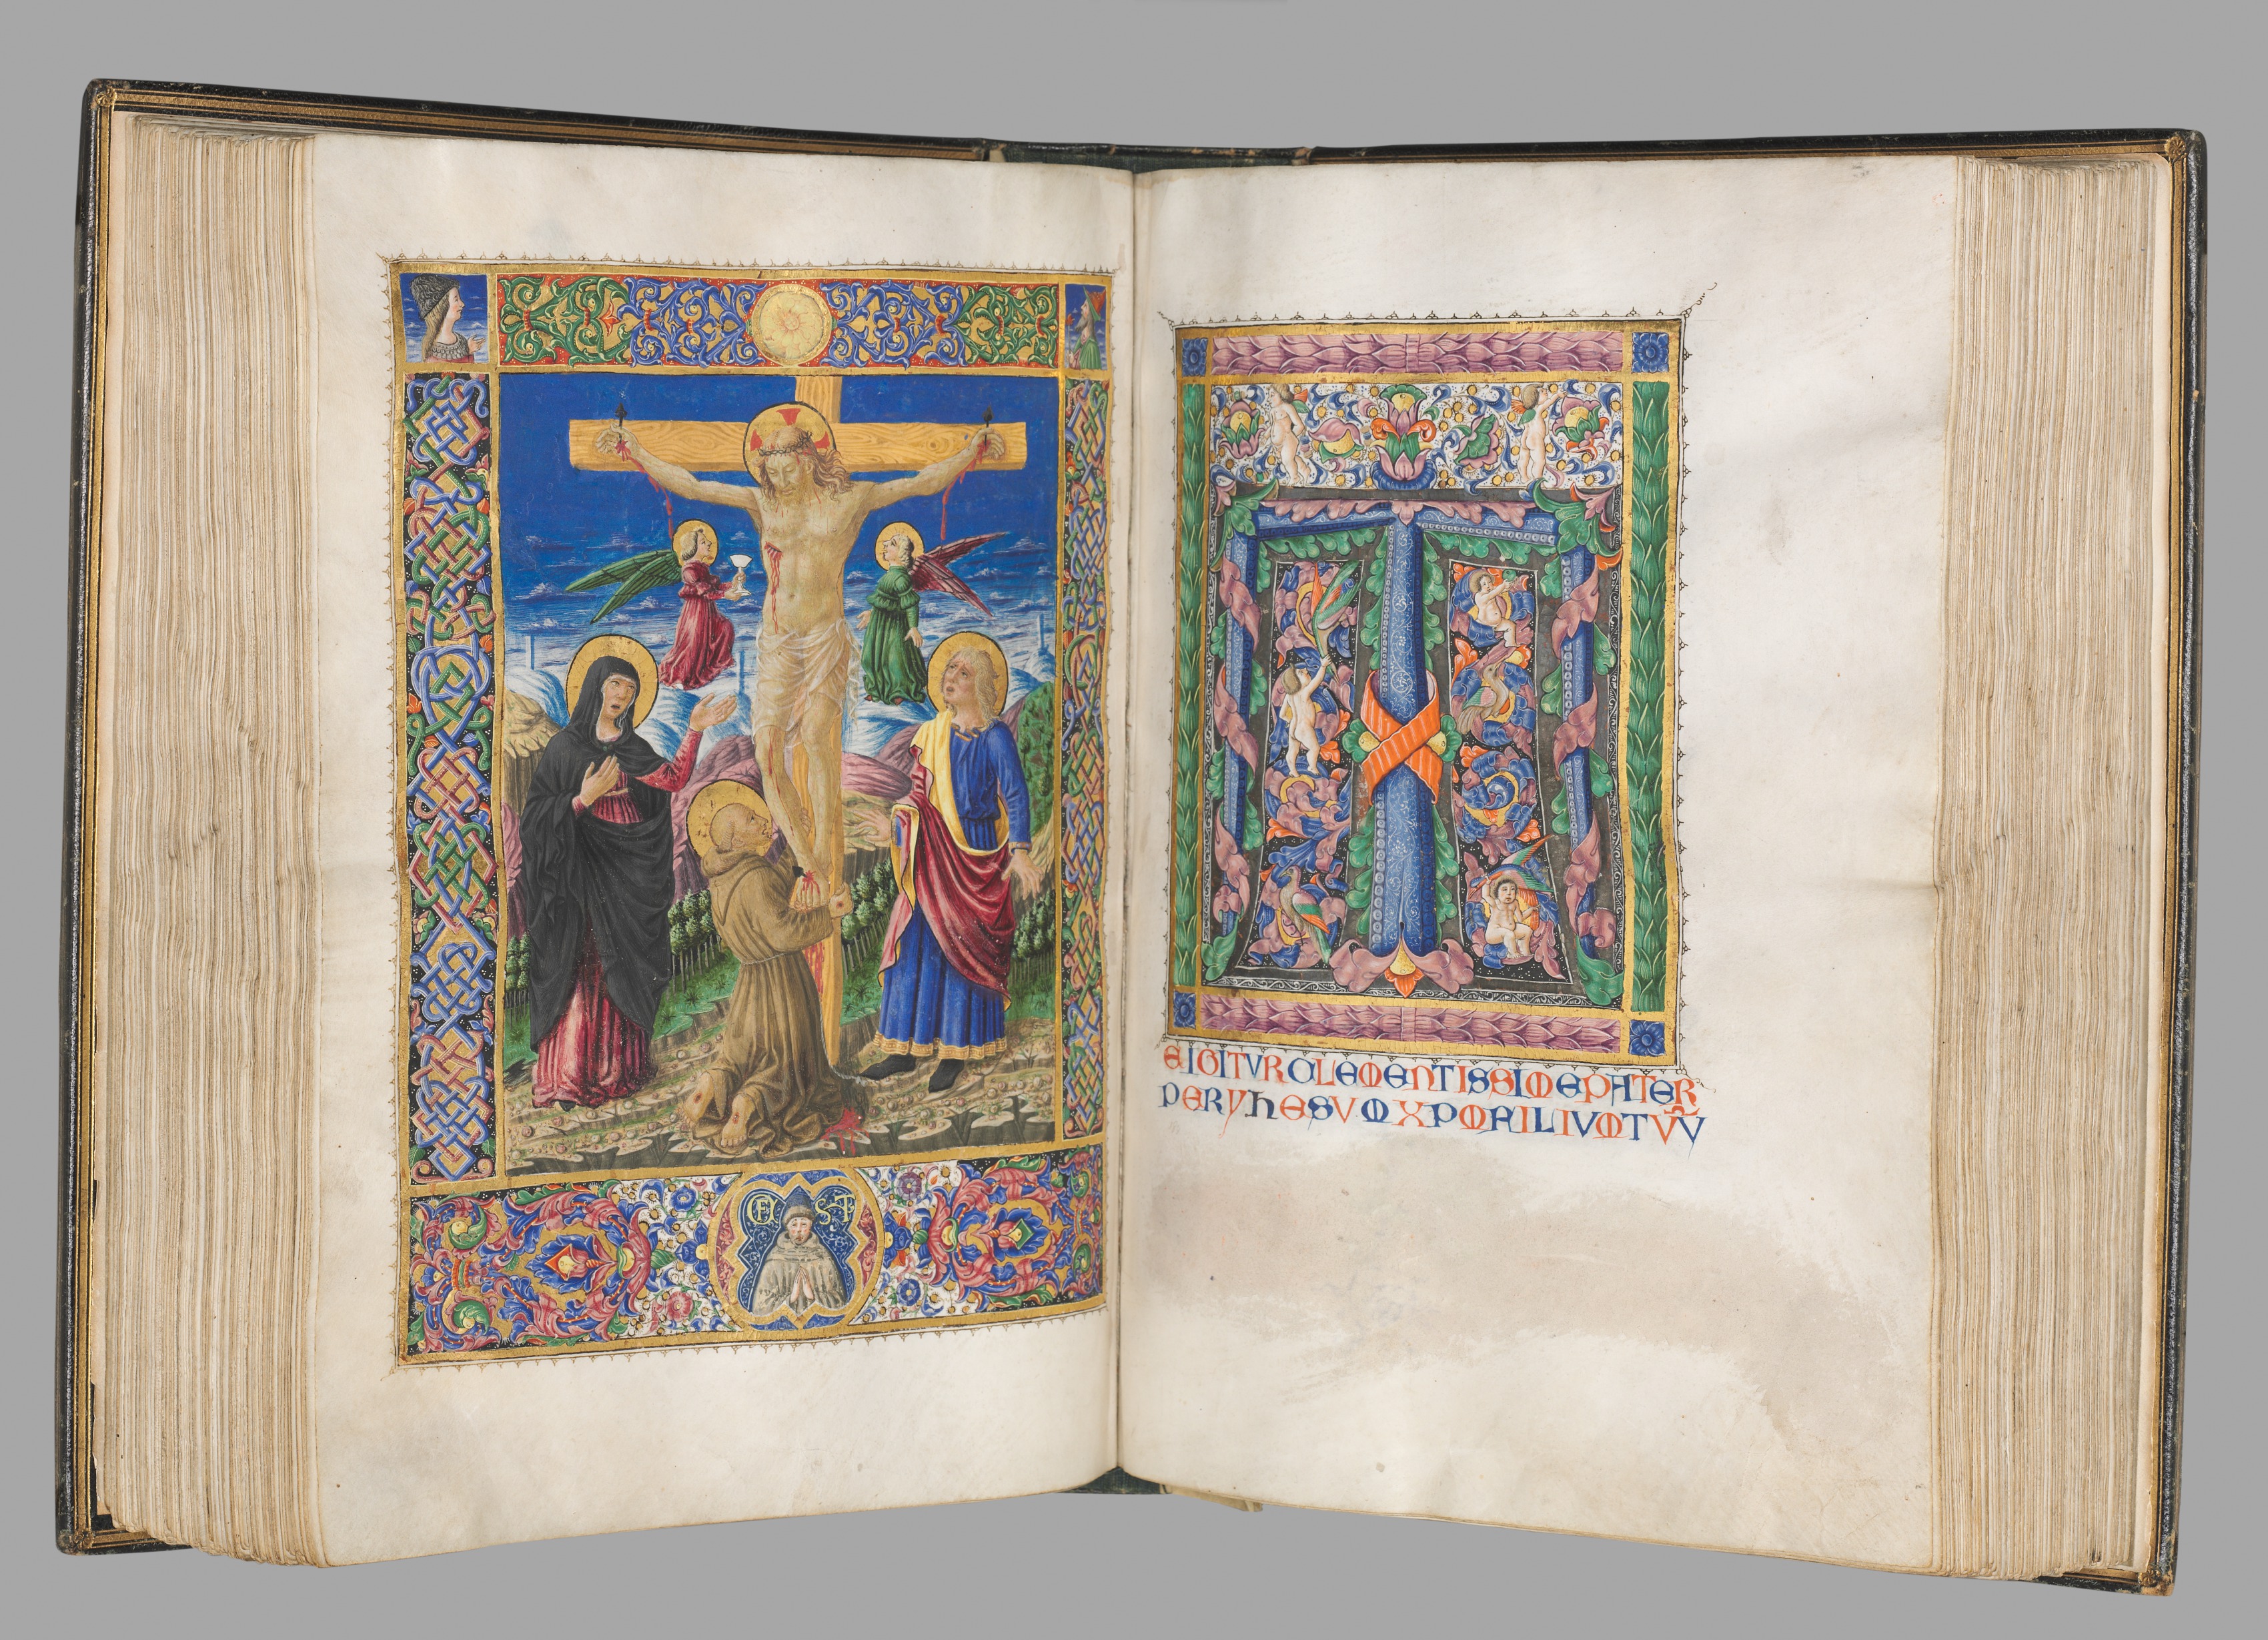 F S T
T
EIGITVRCLEMENTISSIMEPATER
PERYHESVMXPMFILIVMTVV̄V